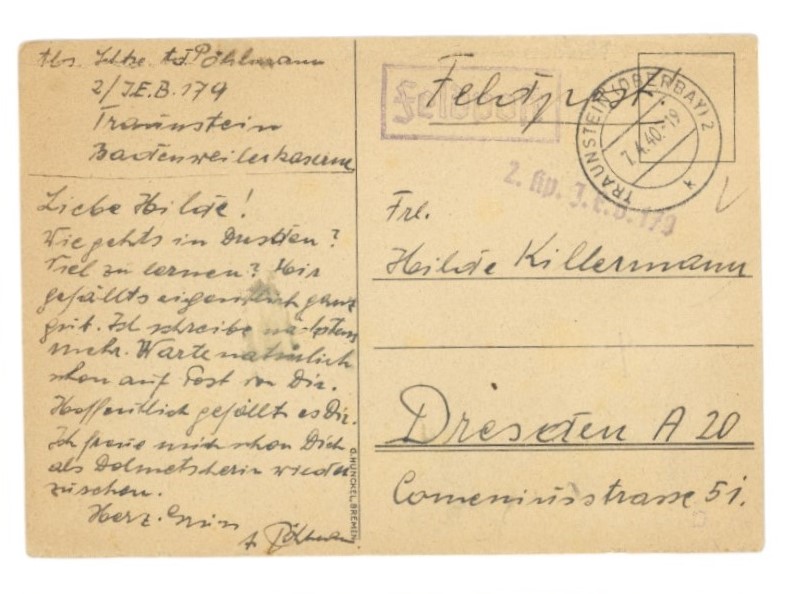 Abs. Schtz. A. Pöhlmann
2/J.E.B. 179
Traunstein
Badenweilerkaserne
Liebe Hilde!
Wie gehts in Dresden?
Viel zu lernen? Mir
gefällts eigentlich ganz
gut. Ich schreibe nächstens
mehr. Warte natürlich
schon auf Post von Dir.
Hoffentlich gefällt es Dir.
Ich freue mich schon Dich
als Dolmetscherin wieder
zusehen.
Herz. Gruss
A. Pöhlmann
G. HUNCKEL, BREMEN
Feldpost
Feldpost!
TRAUNSTEIN (OBERBAY) 2
7.4.40.-19
2. Kp. J.E.B. 179
Frl.
Hilde Killermann
Dresden A 20
Comeniusstrasse 51.